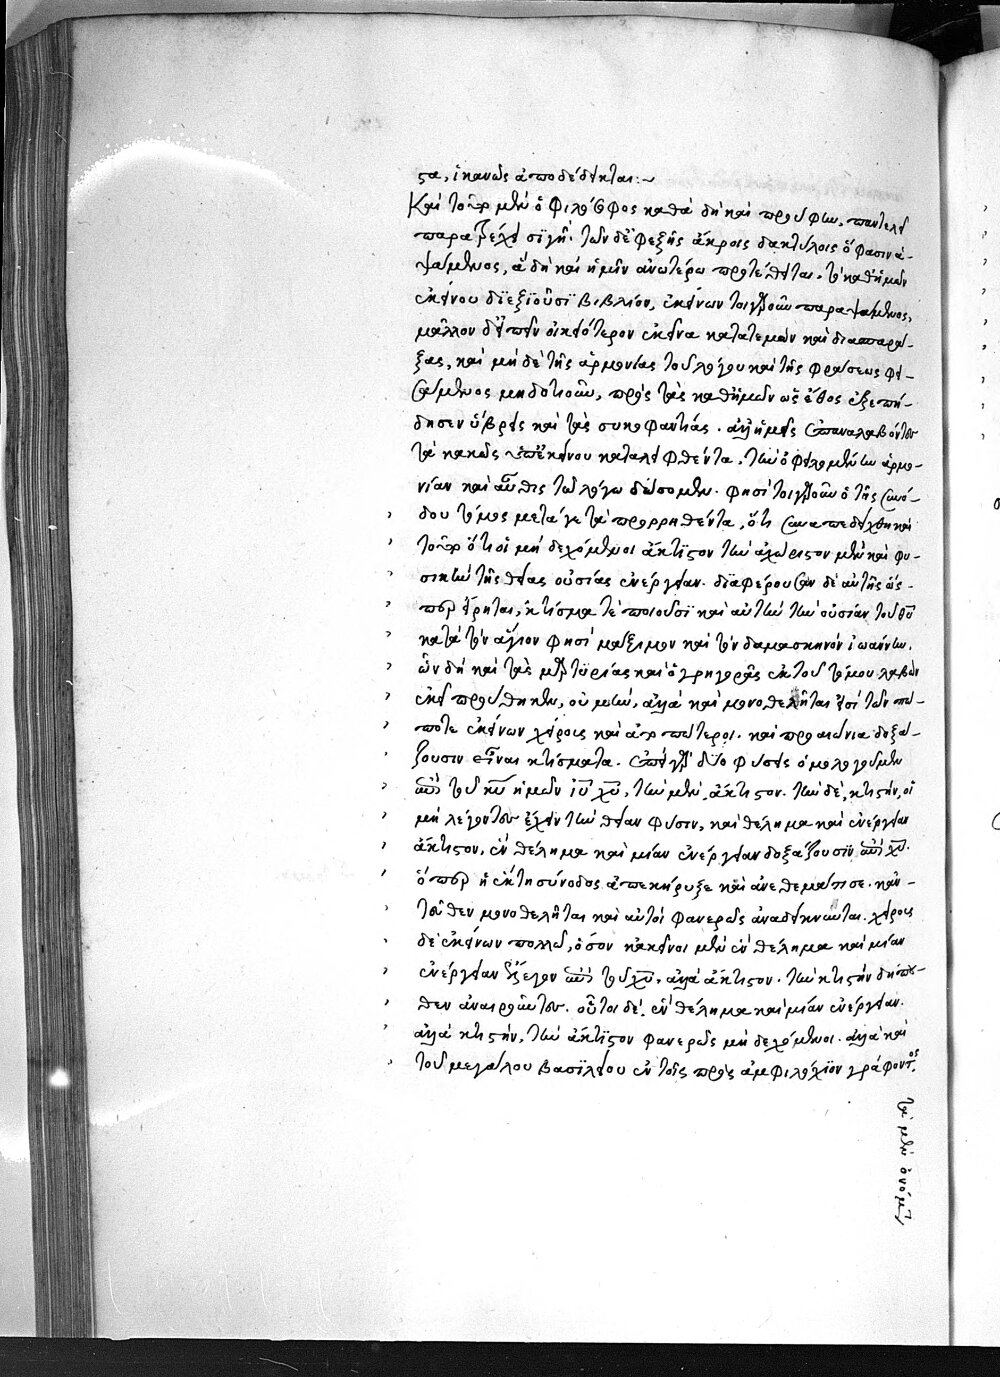 στα, ἱκανῶς ἀποδέδεικται:~
Καὶ τοῦτο μὲν ὁ φιλόσοφος καθὰ δὴ καὶ πρὸ τούτου, παντελεῖ
παρατρέχει σιγῇ· τῶν δ' ἐφεξῆς ἄκροις δακτύλοις ὅ φασιν ἁ-
ψάμενος, ἃ δὴ καὶ ἡμῖν ἀνωτέρω προτέθειται. τὸ καθ' ἡμῶν
ἐκείνου διεξιοῦσι βιβλίον, ἐκείνων τοιγαροῦν παραψάμενος,
μᾶλλον δ' εἰπεῖν οἰκειότερον ἐκεῖνα κατατεμὼν καὶ διασπαρά-
ξας, καὶ μηδὲ τῆς ἁρμονίας τοῦ λόγου καὶ τῆς φράσεως φει-
σάμενος μηδοτιοῦν, πρὸς τὰς καθ' ἡμῶν ὡς ἔθος ἐξεπή-
δησεν ὕβρεις καὶ τὰς συκοφαντίας. ἀλλ' ἡμεῖς ἐπαναλαβόντες
τὰ κακῶς ὑπ' ἐκείνου καταλειφθέντα, τὴν ὀφειλομένην ἁρμο-
νίαν καὶ αὖθις τῷ λόγῳ δώσομεν. φησὶ τοιγαροῦν ὁ τῆς συνό-
δου τόμος μετά γε τὰ προρρηθέντα, ὅτι συναπεδείχθη καὶ
τοῦτο ὅτι οἱ μὴ δεχόμενοι ἄκτιστον τὴν ἀχώριστον μὲν καὶ φυ-
σικὴν τῆς θείας οὐσίας ἐνέργειαν. διαφέρουσαν δὲ αὐτῆς ὥς-
περ εἴρηται, κτίσμα τε ποιοῦσι καὶ αὐτὴν τὴν οὐσίαν τοῦ θῦ
κατὰ τὸν ἅγιον φησὶ μάξιμον καὶ τὸν δαμασκηνὸν ἰωάννην.
ὧν δὴ καὶ τὰς μαρτυρίας καὶ ὁ γρηγορᾶς ἐκ τοῦ τόμου λαβὼν
ἐκεῖ προὔθηκεν, οὐ μὴν, ἀλλὰ καὶ μονοθελῆται εἰσὶ τῶν πώ-
ποτε ἐκείνων χείρους καὶ ἀτοπώτεροι. καὶ προαιώνια δοξά-
ζουσιν εἶναι κτίσματα. ἐπεὶ γὰρ δύο φύσεις ὁμολογουμεν
ἐπὶ τοῦ κῦ ἡμῶν ἰῦ χῦ, τὴν μὲν, ἄκτιστον. τὴν δὲ, κτιστὴν, οἱ
μὴ λέγοντες ἔχειν τὴν θείαν φύσιν, καὶ θέλημα καὶ ἐνέργειαν
ἄκτιστον, ἓν θέλημα καὶ μίαν ἐνέργειαν δοξάζουσιν ἐπὶ χῦ.
ὅπερ ἡ ἕκτη σύνοδος ἀπεκήρυξε καὶ ἀνεθεμάτισε. κἀν-
τεῦθεν μονοθελῆται καὶ αὐτοὶ φανερῶς ἀναδείκνυνται. χείρους
δὲ ἐκείνων πολλῷ, ὅσον κἀκεῖνοι μὲν ἓν θέλημα καὶ μίαν
ἐνέργειαν ἔλεγον ἐπὶ τοῦ χῦ, ἀλλὰ ἄκτιστον. τὴν κτιστὴν δήπου-
θεν ἀναιροῦντες. οὗτοι δὲ, ἓν θέλημα καὶ μίαν ἐνέργειαν.
ἀλλὰ κτιστὴν, τὴν ἄκτιστον φανερῶς μὴ δεχόμενοι. ἀλλὰ καὶ
τοῦ μεγάλου βασιλείου ἐν τοῖς πρὸς ἀμφιλόχιον γράφοντος.
τὰ μὲν ὀνόματ